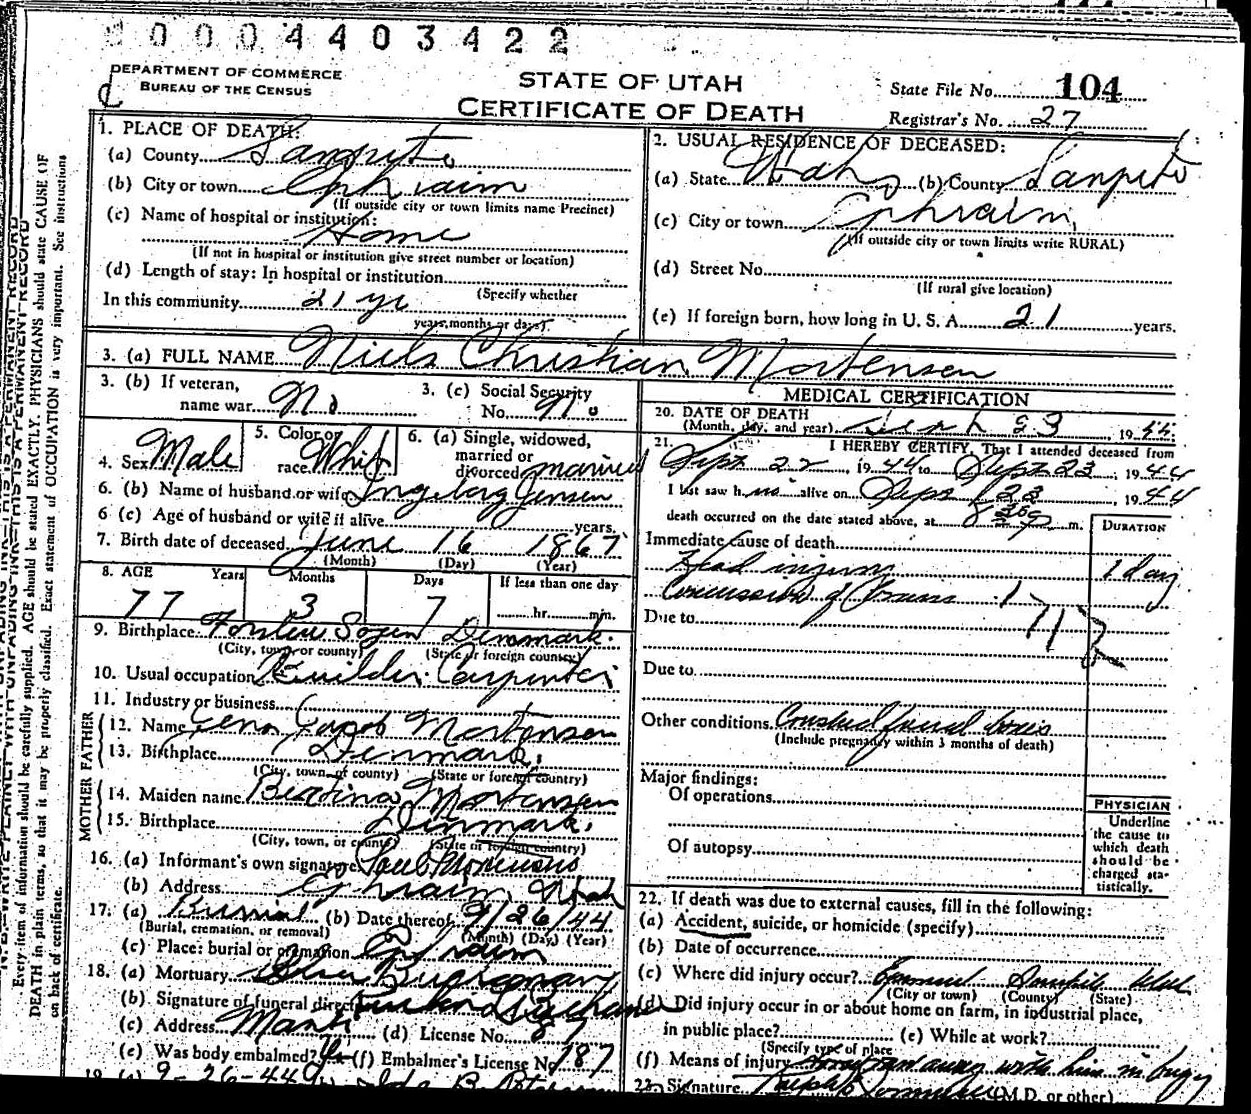 0 0 0 4 4 0 3 4 2 2
DEPARTMENT OF COMMERCE
BUREAU OF THE CENSUS
STATE OF UTAH
CERTIFICATE OF DEATH
State File No. 104
Registrar's No. 27
1. PLACE OF DEATH:
(a) County Sanpete
(b) City or town Ephraim
(If outside city or town limits name Precinct)
(c) Name of hospital or institution:
Home
(If not in hospital or institution give street number or location)
(d) Length of stay: In hospital or institution
(Specify whether
In this community 21 yr
years, months or days)
2. USUAL RESIDENCE OF DECEASED:
(a) State Utah (b) County Sanpete
(c) City or town Ephraim
(If outside city or town limits write RURAL)
(d) Street No.
(If rural give location)
(e) If foreign born, how long in U. S. A. 21 years.
3. (a) FULL NAME Niels Christian Mortensen
3. (b) If veteran, name war No
3. (c) Social Security No. No
4. Sex Male
5. Color or race White
6. (a) Single, widowed, married or divorced married
6. (b) Name of husband or wife Ingeborg Jensen
6 (c) Age of husband or wife if alive years.
7. Birth date of deceased June 16 1867
(Month) (Day) (Year)
8. AGE Years Months Days If less than one day
77 3 7 hr. min.
9. Birthplace Denmark.
(City, town, or county) (State or foreign country)
10. Usual occupation Builder Carpenter
11. Industry or business
FATHER
12. Name Jacob Mortensen
13. Birthplace Denmark.
(City, town, or county) (State or foreign country)
MOTHER
14. Maiden name Mortensen
15. Birthplace Denmark.
(City, town, or county) (State or foreign country)
16. (a) Informant's own signature
(b) Address Ephraim, Utah
17. (a) Burial (b) Date thereof 9/26/44
(Burial, cremation, or removal) (Month) (Day) (Year)
(c) Place: burial or cremation Ephraim
18. (a) Mortuary
(b) Signature of funeral director
(c) Address Manti (d) License No. 87
(e) Was body embalmed? Yes (f) Embalmer's License No. 187
19. (a) 9-26-44
MEDICAL CERTIFICATION
20. DATE OF DEATH
(Month, day, and year) Sept 23, 1944
21. I HEREBY CERTIFY, That I attended deceased from
Sept 22, 1944 to Sept 23, 1944
I last saw him alive on Sept 23 1944
death occurred on the date stated above, at m.
DURATION
Immediate cause of death
Head injury 1 day
Concussion of brain
Due to
Due to
Other conditions Crushed
(Include pregnancy within 3 months of death)
Major findings:
Of operations
Of autopsy
PHYSICIAN
Underline the cause to which death should be charged statistically.
22. If death was due to external causes, fill in the following:
(a) Accident, suicide, or homicide (specify)
(b) Date of occurrence
(c) Where did injury occur? Utah
(City or town) (County) (State)
(d) Did injury occur in or about home on farm, in industrial place,
in public place? (e) While at work?
(Specify type of place
(f) Means of injury ran away with him in
23. Signature (M.D. or other)
Every item of information should be carefully supplied. AGE should be stated EXACTLY. PHYSICIANS should state CAUSE OF
DEATH in plain terms, so that it may be properly classified. Exact statement of OCCUPATION is very important. See instructions
on back of certificate.